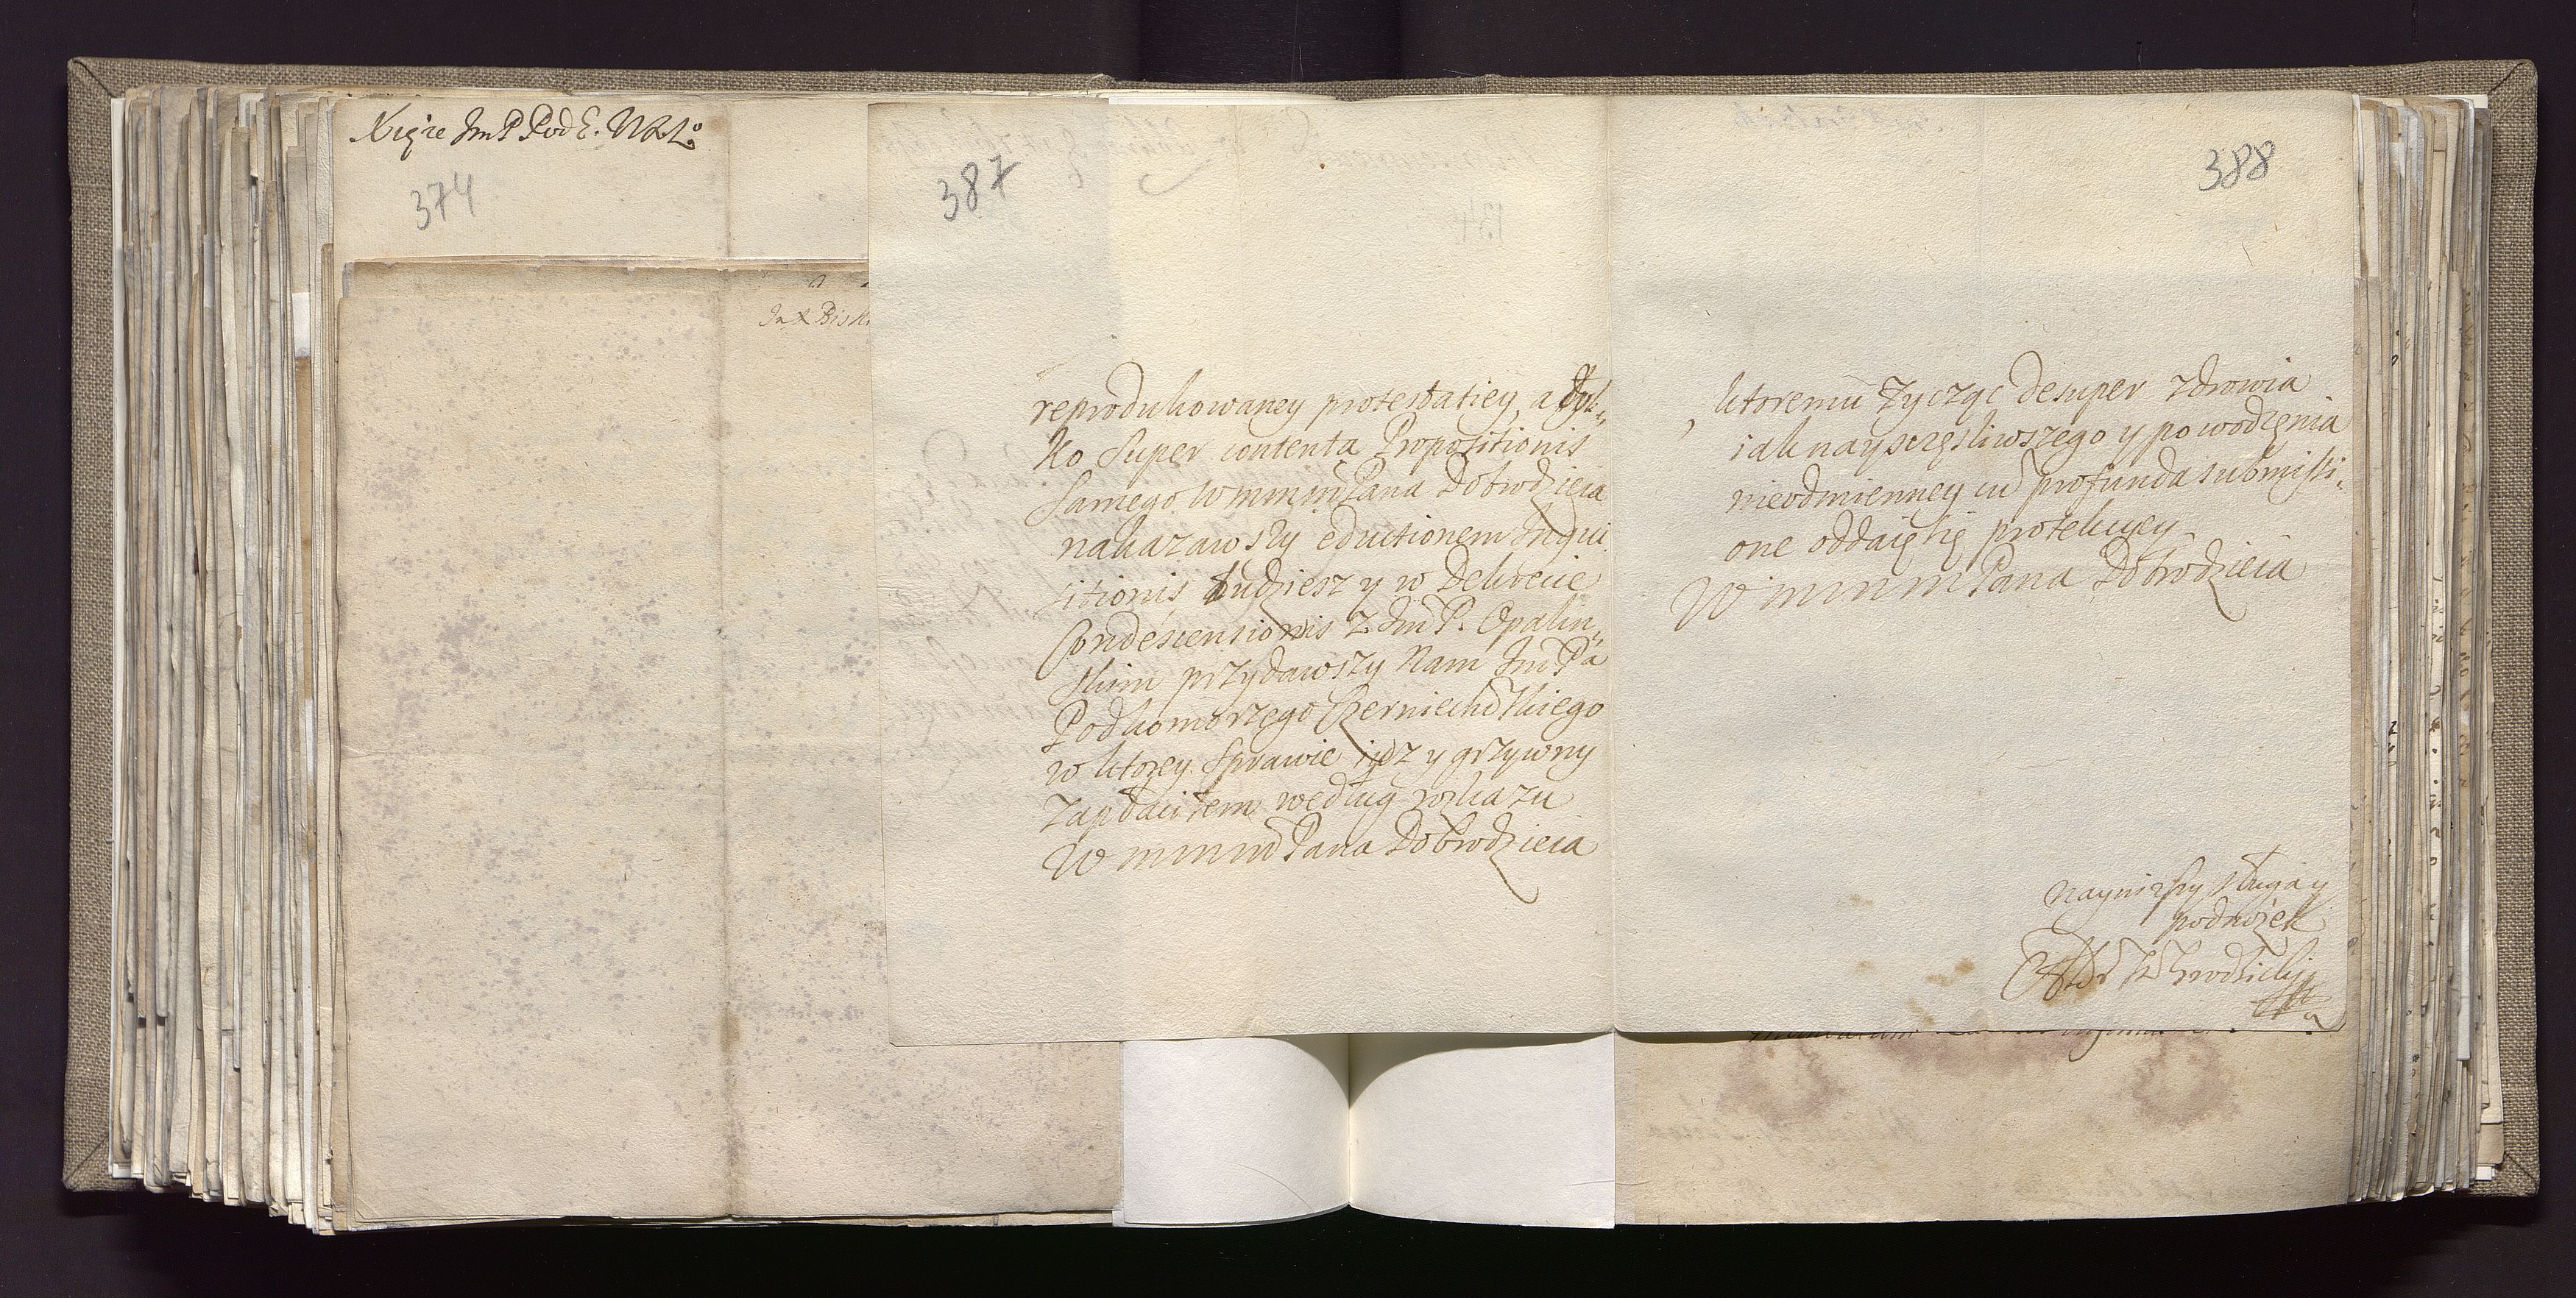 Xiąże Jm P Pod E. W.X.L.
374
Jmx Bisk
387
reprodukowaney protestatiey, a tyl-
ko super contenta Propositionis
samego W m m m Pana Dobrodzieia
nakazawszy eductionem Inqui
sitionis tudziesz y w Dekrecie
Condescensionis z Jm P. Opaliń-
skim przydawszy nam Jm Pa
Podkomorzego Czerniechoskiego
w ktorey sprawie iusz y grzywny
zapłaciłem według rozkazu
W m m m Pana Dobrodzieia
388
ktoremu życząc desuper zdrowia
iak nayszczęśliwszego y powodzęnia
nieodmienney cu profunda submissi-
one oddaię się protekcyey
W m m m Pana Dobrodzieia
Nayniższy sługa y
podnożek